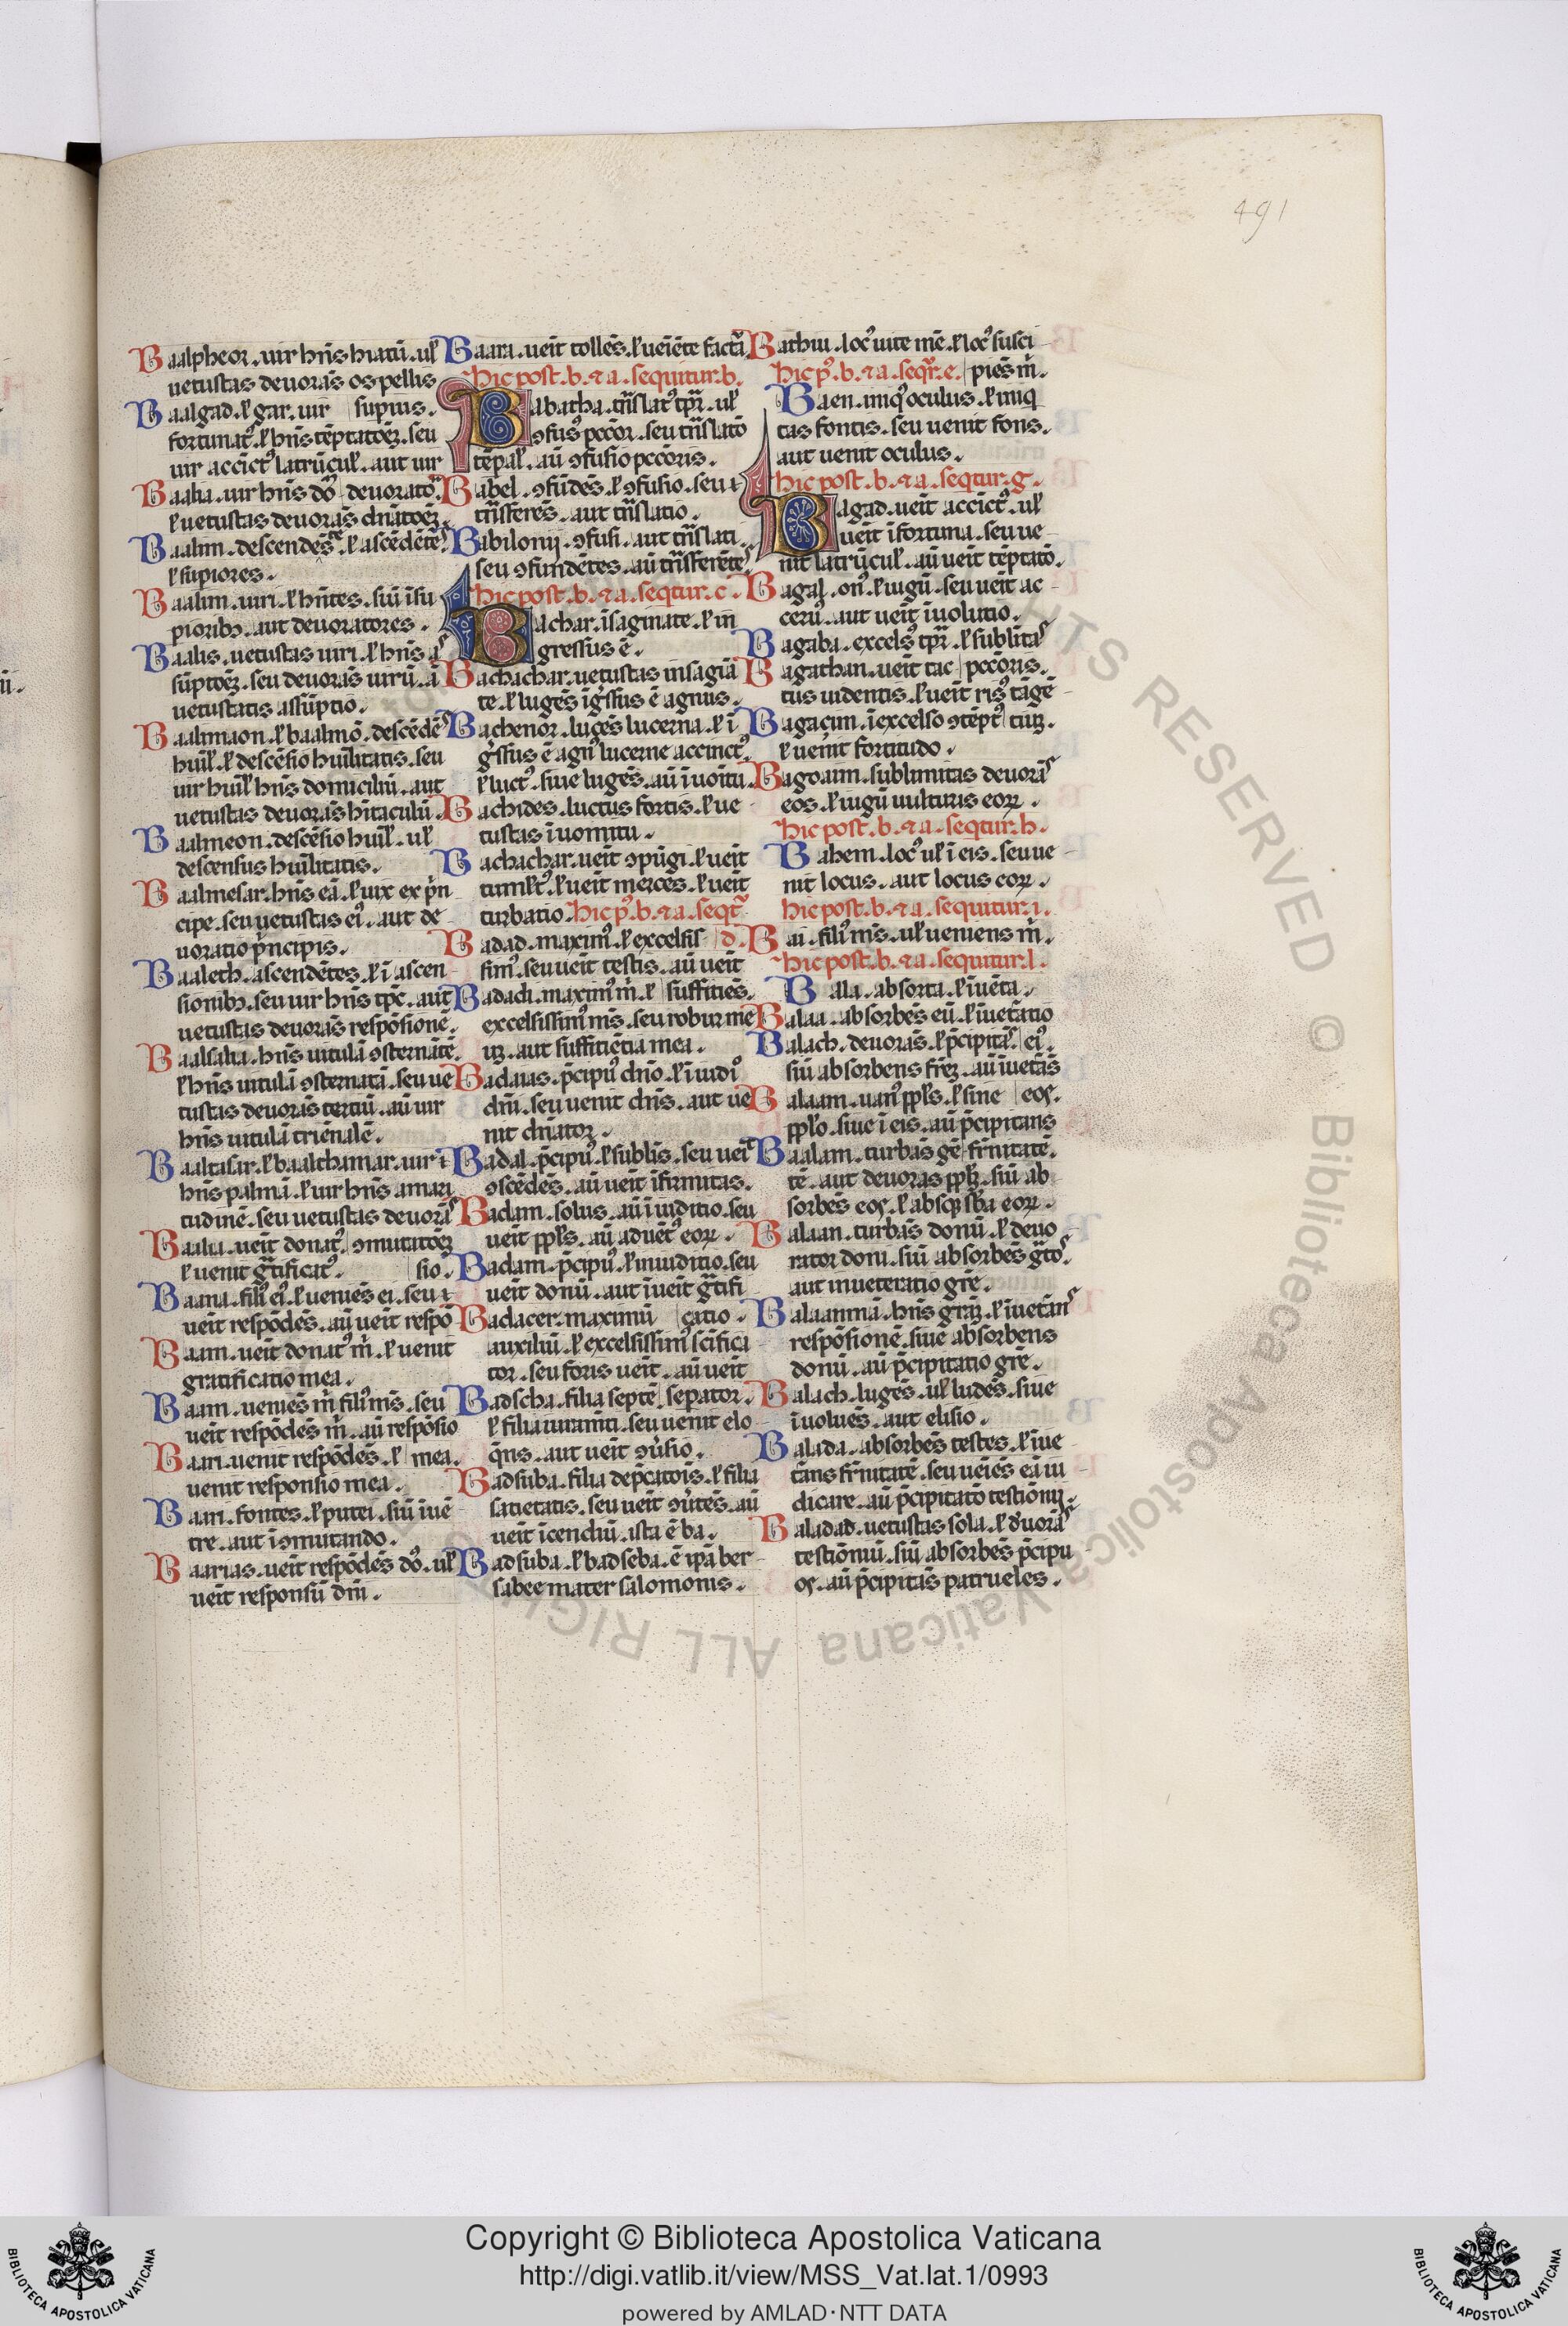 491
Baalpheor . uir hn̄s hiatū . ul̓
uetustas deuorās os pellis
Baalgad . ł gar . uir | supius .
fortunat᷒ . ł hn̄s tēptatōeꝫ . seu
uir accīct᷒ latrūcul̓ . aut uir
Baalia . uir hn̄s dō | deuoratō᷒
ł uetustas deuorās dn̄atōeꝫ .
Baalim . descendēs . ł ascēdētes
ł supiores .
Baalim . uiri . ł hn̄tes . siū ī su
pioribꝫ . aut deuoratores .
Baalis . uetustas uiri . ł hn̄s a
sūptōeꝫ . seu deuorās uirū . ā
uetustatis assūptio .
Baalmaon . ł baalmō . descēdēs
huīl̓ . ł descēsio huīlitatis . seu
uir huīl̓ hn̄s domiciliū . aut
uetustas deuorās hītaculū .
Baalmeon . descēsio huīl̓ . ul̓
descensus huīlitatis .
Baalmesar . hn̄s eā . ł uix ex p̄n
cipe . seu uetustas ei᷒ . aut de
uoratio p̄ncipis .
Baaleth . ascendētes . ł ī ascen
sionibꝫ . seu uir hn̄s tp̄c . aut
uetustas deuorās respōsionē .
Baalsalia . hn̄s uitulā ꝯsternātē .
ł hn̄s uitulā ꝯsternatā . seu ue
tustas deuorās tertiū . aū uir
hn̄s uitulā triēnalē .
Baaltasar . ł baalthamar . uir ⁊
hn̄s palmā . ł uir hn̄s amari
tudinē . seu uetustas deuorās
Baalia . ueīt donat᷒ . ꝯmutatōeꝫ
ł uenit gr̄tificat᷒ . | sio᷒
Baana . fili᷒ ei᷒ . ł ueniēs ei . seu ⁊
ueīt respōdēs . aū ueīt respō
Baam . ueīt donat᷒ m̄ . ł uenit
gratificatio mea .
Baam . ueniēs m̄ fili᷒ m̄s . seu
ueīt respōdēs m̄ . aū respōsio
Baari . uenit respōdēs . ł | mea .
uenit responsio mea .
Baari . fontes . ł putei . siū īuē
tre . aut ī ꝯmutando .
Baarias . ueīt respōdēs dō᷒ . ul̓
ueīt responsū dn̄i .
Baara . ueīt tollēs . ł ueīēte factā
hic post . b . ⁊ a . sequitur . b .
Babatha . tn̄slat᷒ tp̄r . ul̓
ꝯfus᷒ pccōr . seu tn̄slatō
tēpal̓ . aū ꝯfusio pccōris .
Babel . ꝯfūdēs . ł ꝯfusio . seu ⁊
tn̄sferēs . aut tn̄slatio .
Babilonij . ꝯfusi . aut tn̄slati .
seu ꝯfundētes . aū tn̄sferētes
hic post . b . ⁊ a . seqtur . c .
Bachar . ī saginate . ł in
gressus ē .
Bachachar . uetustas in sagiā
te . ł lugēs īg̓ssus ē agnus .
Bachenor . lugēs lucerna . ł ī
g̓ssus ē agn᷒ lucerne accinct᷒ .
ł luct᷒ . siue lugēs . aū ī uoītu .
Bachides . luctus fortis . ł ue
tustas ī uomitu .
Bachachar . ueīt ꝯpūgi . ł ueīt
tumł᷒t . ł ueīt mercēs . ł ueīt
turbatio . hic p᷒ . b . ⁊ a . seqt̄
Badad . maxim᷒ . ł excelsis | d .
sim᷒ . seu ueīt testis . aū ueīt
Badach . maxim᷒ m̄ . ł | sufficiēs .
excelsissim᷒ m̄s . seu robur me
uꝫ . aut sufficiētia mea .
Badaias . p̄cipu᷒ dn̄o . ł ī iudi᷒
dn̄i . seu uenit dn̄s . aut ue
nit dn̄ator .
Badal . p̄cipu᷒ . ł sublīs . seu ueīt
ꝯscēdēs . aū ueīt īfirmitas .
Badam . solus . aū ī iuditio . seu
ueīt pp̄ls . aū aduēt᷒ eoꝝ .
Badam . p̄cipu᷒ . ł in iuditio . seu
ueīt donū . aut īueīt gr̄tifi
Badacer . maximū | catio .
auxiliū . ł excelsissim᷒ scīfica
tor . seu foris ueīt . aū ueīt
Badscha . filia septē | sepator .
ł filia iuramīti . seu uenit elo
q̄ns . aut ueīt ꝯu̓sio .
Badsuba . filia dep̄catōis . ł filia
satietatis . seu ueīt ꝯu̓tēs . aū
ueīt īcendiū . ista ē ba .
Badsuba . ł badseba . ē ip̄a ber
sabee mater salomonis .
Bathui . loc᷒ uite mē . ł loc᷒ susci
hic p᷒ . b . ⁊ a . seqr̄ . e . | piēs m̄ .
Baen . iniq᷒ oculus . ł iniq
tas fontis . seu uenit fons .
aut uenit oculus .
hic post . b . ⁊ a . seqtur . g .
Bagad . ueīt accīct᷒ . ul̓
ueīt ī fortuna . seu ue
nit latrūcul̓ . aū ueīt tēptatō .
Bagal . on᷒ . ł iugū . seu ueīt ac
ceru᷒ . aut ueīt īuolutio .
Bagaba . excels᷒ tp̄r . ł sublītas
Bagathan . ueīt tac | pccōris .
tus uidentis . ł ueīt ris᷒ tāgē
Bagacim . ī excelso ꝯtēpt᷒ tuꝫ .
ł uenit fortitudo .
Bagoaim . sublimitas deuorās
eos . ł iugū uulturis eoꝝ .
hic post . b . ⁊ a . seqtur . h .
Bahem . loc᷒ ul̓ ī eis . seu ue
nit locus . aut locus eoꝝ .
hic post . b . ⁊ a . sequitur . i .
Bai . fili᷒ m̄s . ul̓ ueniens m̄ .
hic post . b . ⁊ a . sequitur . l .
Bala . absorta . ł īuēta .
Balaa . absorbēs eū . ł īuetātio
Balach . deuorās . ł p̄cipitās . ei᷒ .
siū absorbens fr̄eꝫ . aū īuetās
Balaam . uan᷒ pp̄ls . ł sine | eos .
pp̄lo . siue ī eis . aū p̄cipitans
Baalam . turbās gē | fr̄nitatē .
tē . aut deuoras pp̄lꝫ . siū ab
sorbēs eos . ł absqꝫ sb̄a eoꝝ .
Balaan . turbās donū . ł deuo
rator doni . siū absorbēs gr̄tos .
aut inueteratio gr̄e .
Balaanma . hn̄s graꝫ . ł īuetāns
respōsionē . siue absorbens
donū . aū p̄cipitatio gr̄e .
Balach . lugēs . ul̓ ludēs . siue
īuoluēs . aut elisio .
Balada . absorbēs testes . ł īue
tāns fr̄nitatē . seu ueīes eā iu
dicare . aū p̄cipitatō testiōnij .
Baladad . uetustas sola . ł d̓uorās
testiōniū . siū absorbēs p̄cipu
os . aū p̄cipitās patrueles .
ALL RIGHTS RESERVED © Biblioteca Apostolica Vaticana
Copyright © Biblioteca Apostolica Vaticana
http://digi.vatlib.it/view/MSS_Vat.lat.1/0993
powered by AMLAD·NTT DATA
BIBLIOTECA APOSTOLICA VATICANA
BIBLIOTECA APOSTOLICA VATICANA